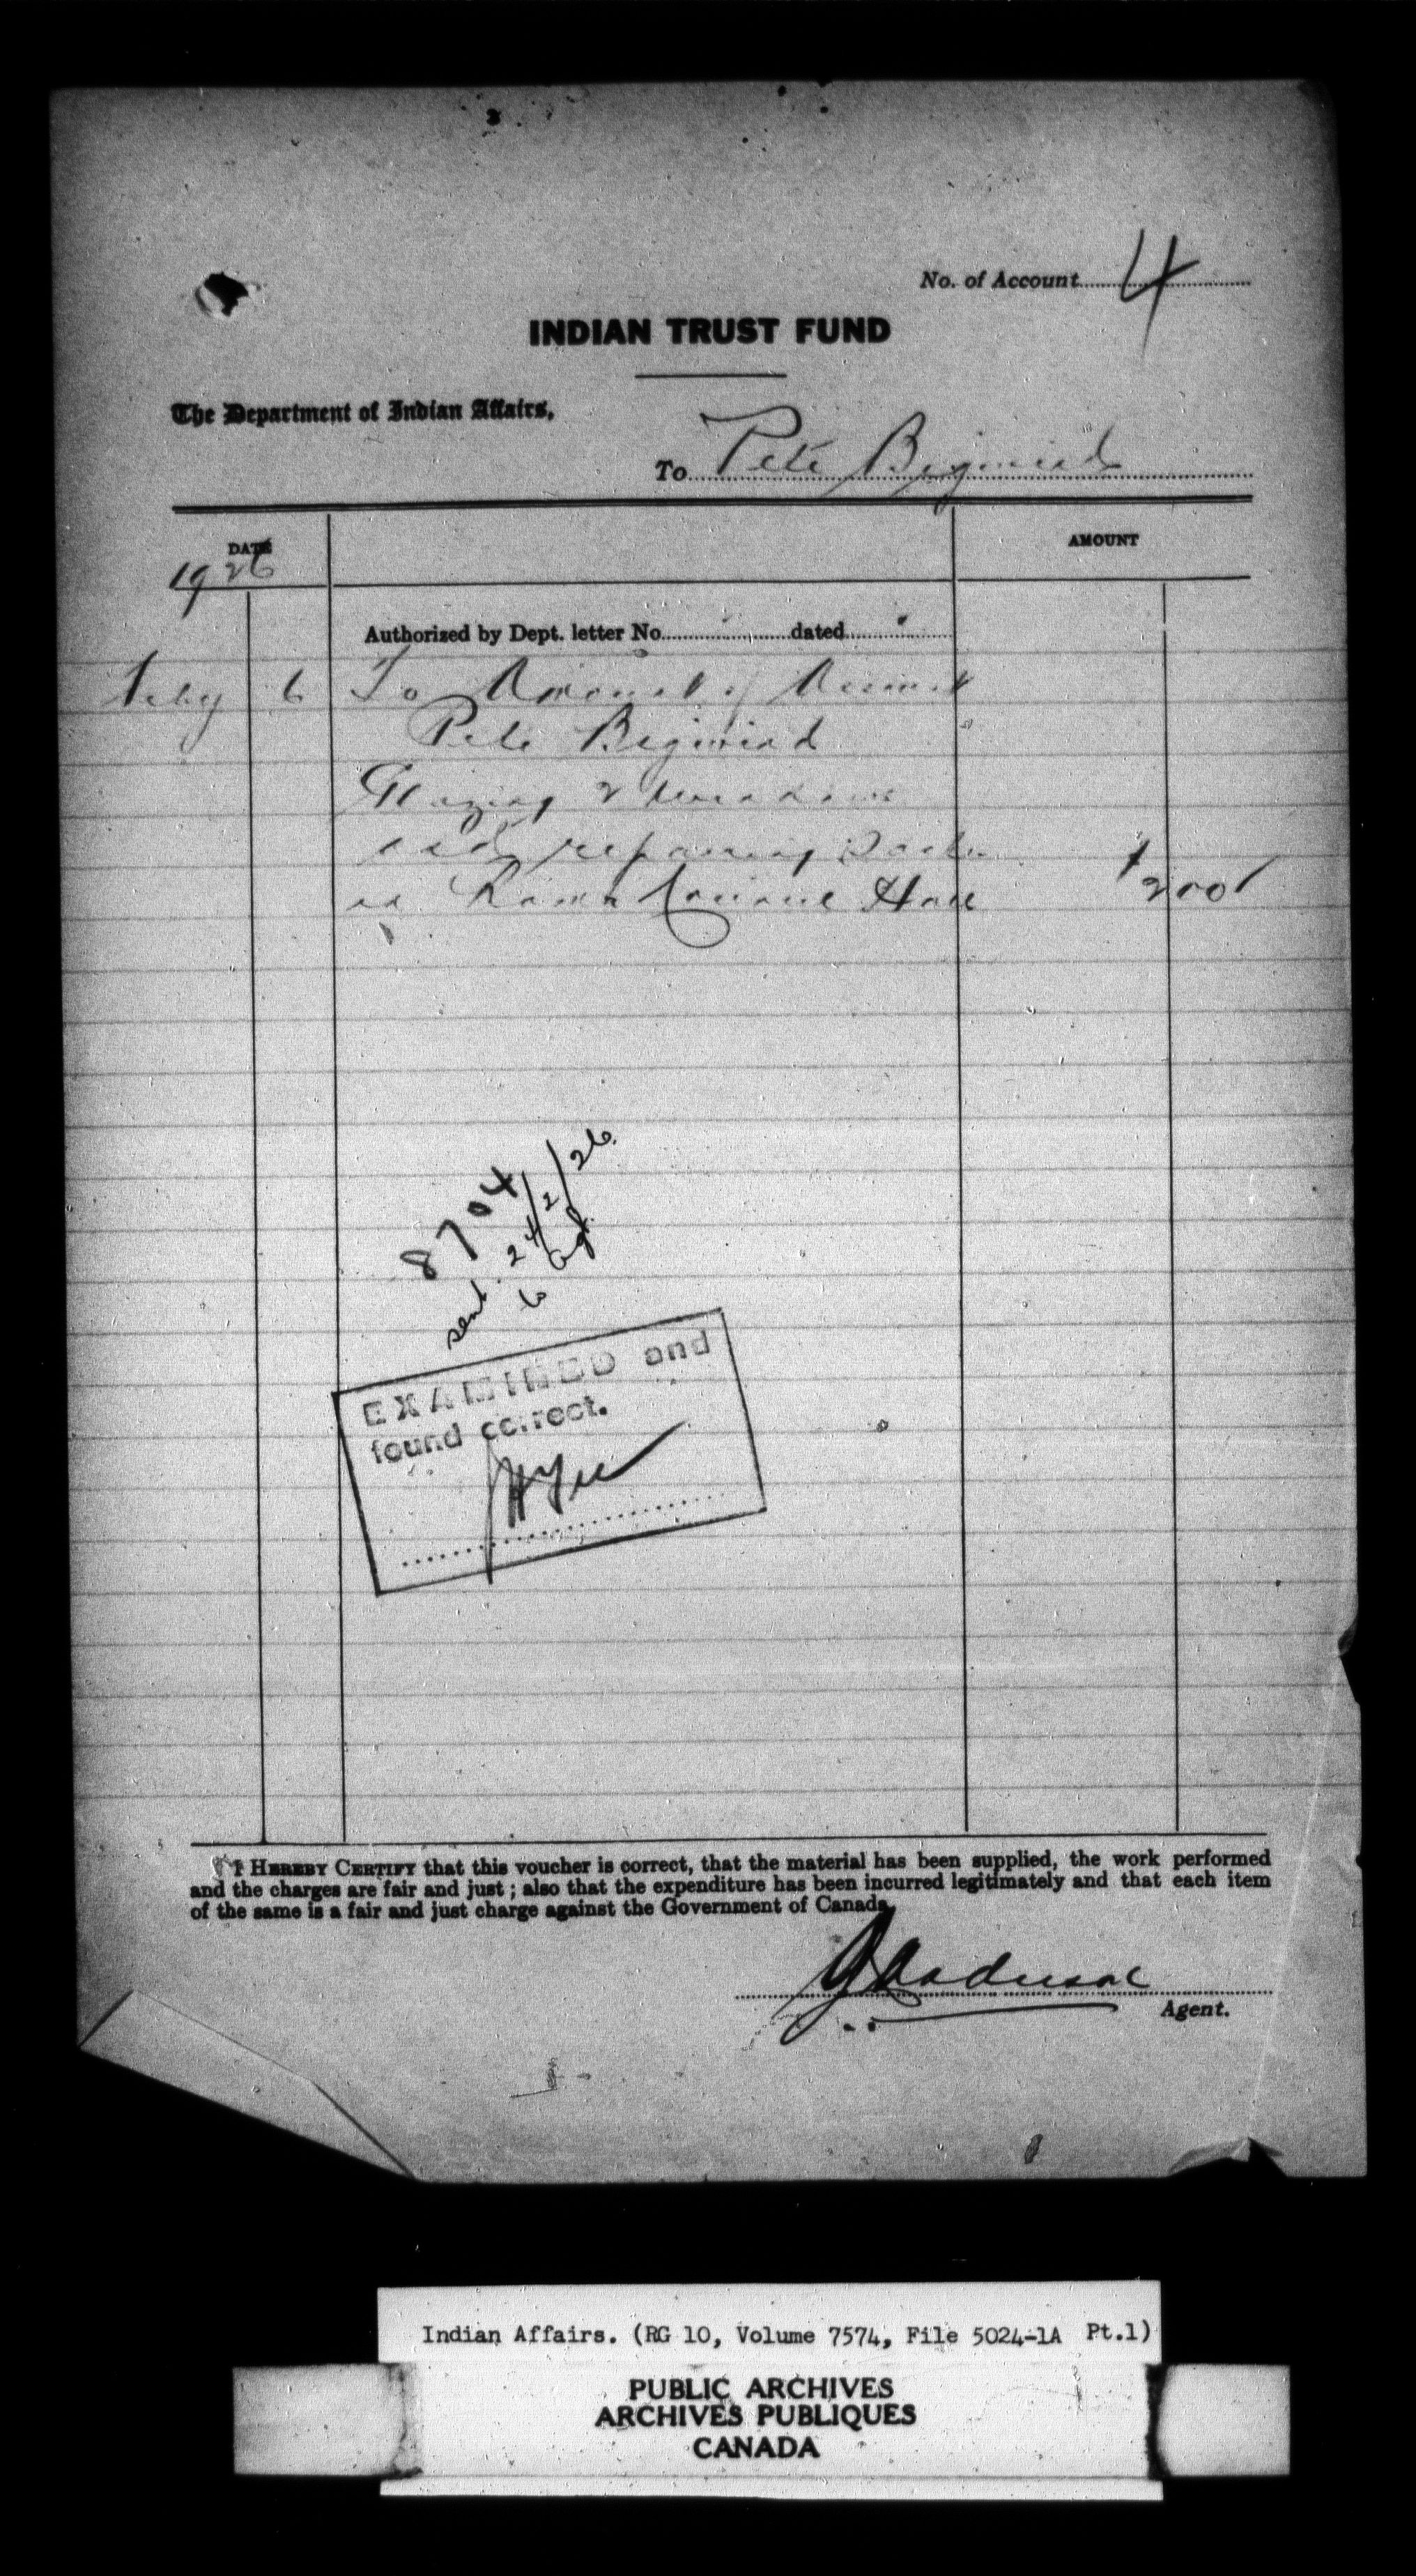 No. of Account 4
INDIAN TRUST FUND
The Department of Indian Affairs,
To Pete Bigwind
DATE
AMOUNT
1926
Authorized by Dept. letter No. dated
Feby 6 To Amount of Account
Pete Bigwind
Glazing 2 windows
and repairing
Rama Council Hall $ 2 00
8704
sent 24/2/26
to agt.
EXAMINED and
found correct.
I HEREBY CERTIFY that this voucher is correct, that the material has been supplied, the work performed
and the charges are fair and just; also that the expenditure has been incurred legitimately and that each item
of the same is a fair and just charge against the Government of Canada.
Agent.
Indian Affairs. (RG 10, Volume 7574, File 5024-1A Pt.1)
PUBLIC ARCHIVES
ARCHIVES PUBLIQUES
CANADA